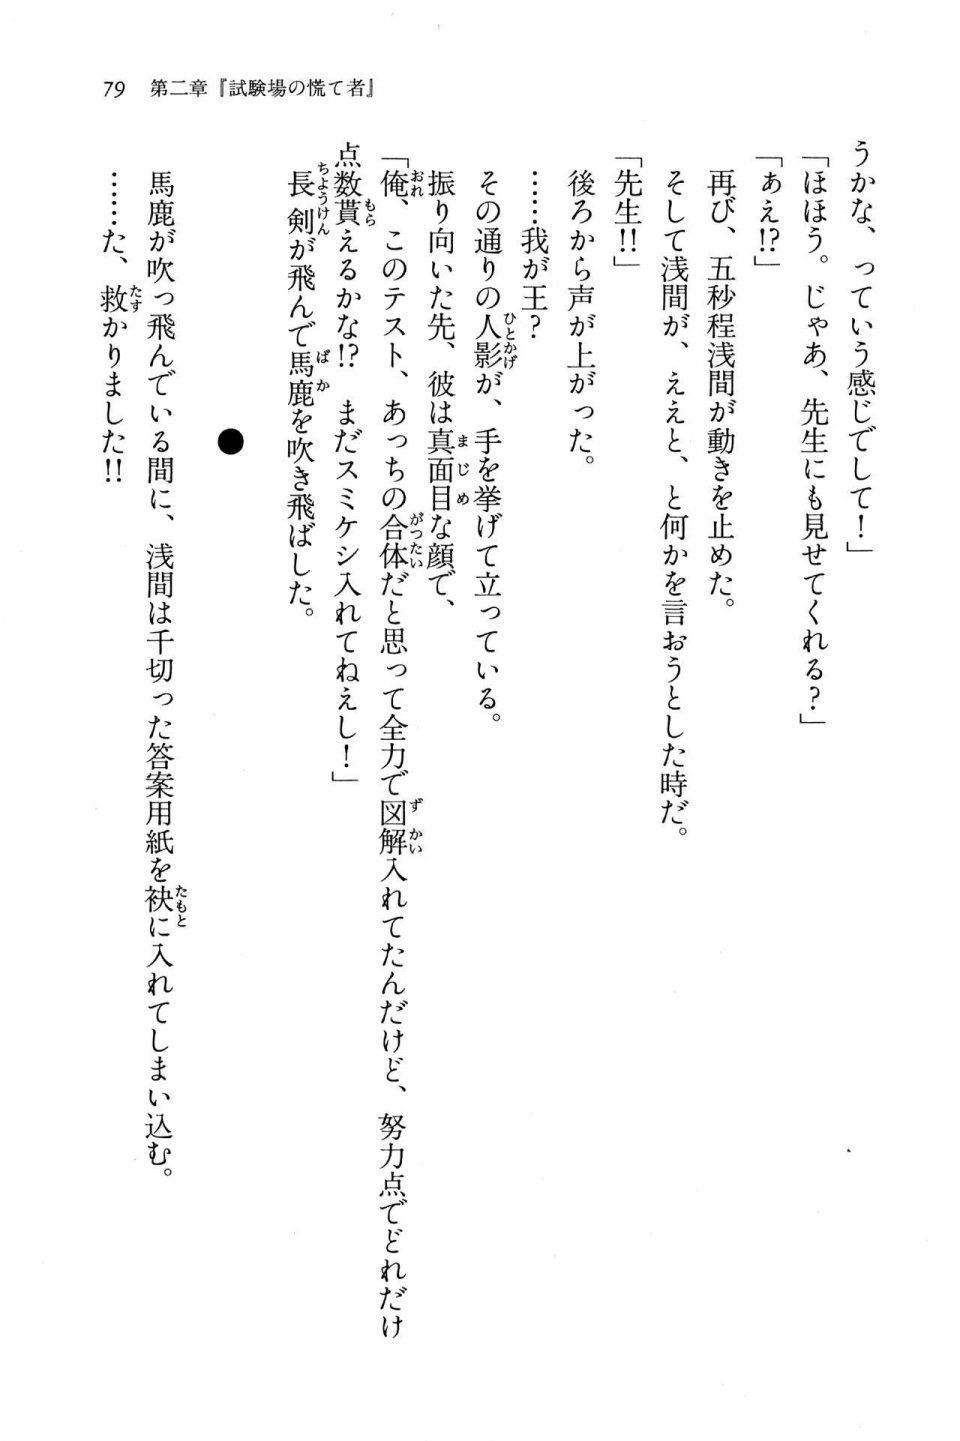 79　第二章『試験場の慌て者』
うかな、っていう感じでして！」
「ほほう。じゃあ、先生にも見せてくれる？」
「ぁえ!?」
再び、五秒程浅間が動きを止めた。
そして浅間が、ええと、と何かを言おうとした時だ。
「先生!!」
後ろから声が上がった。
……我が王？
その通りの人影が、手を挙げて立っている。
振り向いた先、彼は真面目な顔で、
「俺、このテスト、あっちの合体だと思って全力で図解入れてたんだけど、努力点でどれだけ
点数貰えるかな!?　まだスミケシ入れてねえし！」
長剣が飛んで馬鹿を吹き飛ばした。
●
馬鹿が吹っ飛んでいる間に、浅間は千切った答案用紙を袂に入れてしまい込む。
……た、救かりました!!